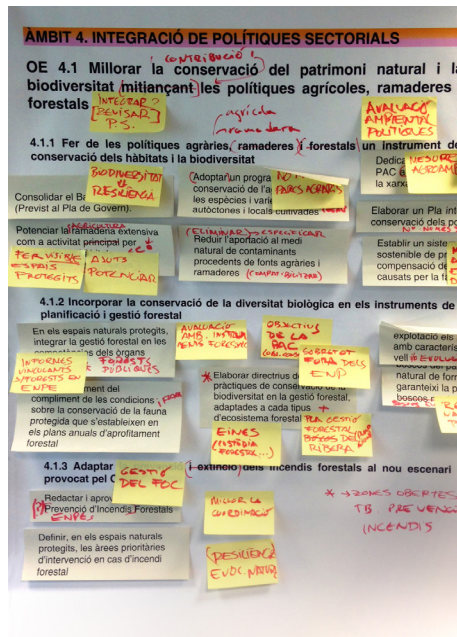 ÀMBIT 4. INTEGRACIÓ DE POLÍTIQUES SECTORIALS
CONTRIBUCIÓ
OE 4.1 Millorar la conservació del patrimoni natural i la
biodiversitat (mitjançant) les polítiques agrícoles, ramaderes
forestals
INTEGRAR?
[REVISAR]
P.S.
agrícola
ramadera
AVALUACIÓ
AMBIENTAL
POLÍTIQUES
4.1.1 Fer de les polítiques agràries, (ramaderes) i forestals un Instrument de
conservació dels hàbitats i la biodiversitat
BIODIVERSITAT
RESILIÈNCIA
Consolidar el
(Previst al Pla de Govern).
Adoptar un progra
conservació de l'a
les espècies i varie
autòctones i locals cultivades
PARCS AGRARIS
Dedica
PAC
la xarxa
MESURES
AGROAMB
Elaborar un Pla int
conservació dels po
Potenciar la ramaderia extensiva
com a activitat principal per
AGRICULTURA
PERMISIBLE
ESPAIS
PROTEGITS
AJUTS
POTENCIAR
(ELIMINAR) ESPECIFICAR
Reduir l'aportació al medi
natural de contaminants
procedents de fonts agràries i
ramaderes
(COMPATIBILITZAR)
Establir un siste
sostenible de pr
compensació de
causats per la fa
4.1.2 Incorporar la conservació de la diversitat biològica en els instruments de
planificació i gestió forestal
En els espais naturals protegits,
integrar la gestió forestal en les
dels òrgans
AVALUACIÓ
AMB. INSTRUMENTS
FORESTALS
OBJECTIUS
DE LA
PAC
SOBRETOT
FORA DELS
ENP
explotació els
amb caracterís
vell
boscos del pa
natural de form
garanteixi la p
boscos
INFORMES
VINCULANTS
S/FORESTS EN
ENPE
FORESTS
PÚBLIQUES
ment del
compliment de les condicions
sobre la conservació de la fauna
protegida que s'estableixen en
els plans anuals d'aprofitament
forestal
Elaborar directrius de
pràctiques de conservació de la
biodiversitat en la gestió forestal,
adaptades a cada tipus
d'ecosistema forestal
EINES
(CUSTÒDIA
FORESTAL...)
PLA GESTIÓ
FORESTAL
BOSCOS DE
RIBERA
4.1.3 Adaptar i extinció dels incendis forestals al nou escenari
provocat pel C
GESTIÓ
DEL FOC
Redactar i aprov
Prevenció d'Incendis Forestals
ENPE
MILLOR LA
COORDINACIÓ
* → ZONES OBERTES
TB PREVENCI
INCENDIS
Definir, en els espais naturals
protegits, les àrees prioritàries
d'intervenció en cas d'incendi
forestal
(RESILIÈNCIA
EVOL. NATURAL